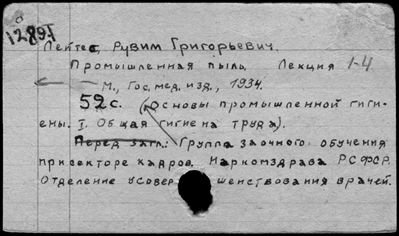 1289.I
Лейтес, Рувим Григорьевич.
Промышленная пыль. Лекция 1-4
М., Гос. мед. изд., 1934.
52 с. (Основы промышленной гиги-
ены. I. Общая гигиена труда).
Перед загл.: Группа заочного обучения
при секторе кадров. Наркомздрава РСФСР.
Отделение усовершенствования врачей.